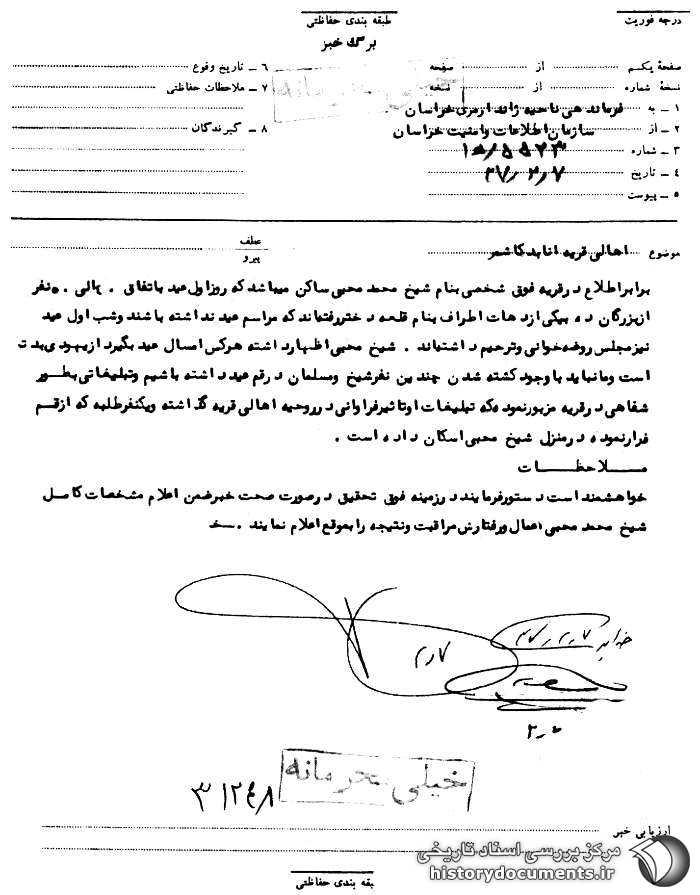 درجه فوریت
طبقه بندی حفاظتی
برگ خبر
صفحهٔ یکم از صفحه
نسخهٔ شماره از نسخه
۱ ـ به فرماندهی ناحیه ژاندارمری خراسان
۲ ـ از سازمان اطلاعات و امنیت خراسان
۳ ـ شماره ۱۵/۵۵۲۳
۴ ـ تاریخ ۳۷/۲/۷
۵ ـ پیوست
۶ ـ تاریخ وقوع
۷ ـ ملاحظات حفاظتی
۸ ـ گیرندگان
خیلی محرمانه
موضوع اهالی قریه انابد کاشمر
عطف
پیرو
برابر اطلاع در قریه فوق شخصی بنام شیخ محمد محبی ساکن میباشد که روز اول عید باتفاق نفر
از بزرگان ده بیکی از دهات اطراف بنام قلعه دختر رفته‌اند که مراسم عید نداشته باشند و شب اول عید
نیز مجلس روضه‌خوانی و ترحیم داشته‌اند . شیخ محبی اظهار داشته هرکس امسال عید بگیرد از یهودی بدتر
است و ما نباید با وجود کشته شدن چندین نفر شیخ و مسلمان در قم عید داشته باشیم و تبلیغاتی بطور
شفاهی در قریه مزبور نموده که تبلیغات او تاثیر فراوانی در روحیه اهالی قریه گذاشته و یکنفر طلبه که از قم
فرار نموده در منزل شیخ محبی اسکان داده است .
ملاحظات
خواهشمند است دستور فرمایند در زمینه فوق تحقیق در صورت صحت خبر ضمن اعلام مشخصات کامل
شیخ محمد محبی اعمال و رفتارش مراقبت و نتیجه را بموقع اعلام نمایند .
۲/۷
خیلی محرمانه
۳۱۲۴۸
ارزیابی خبر
مرکز بررسی اسناد تاریخی
historydocuments.ir
بقه بندی حفاظتی